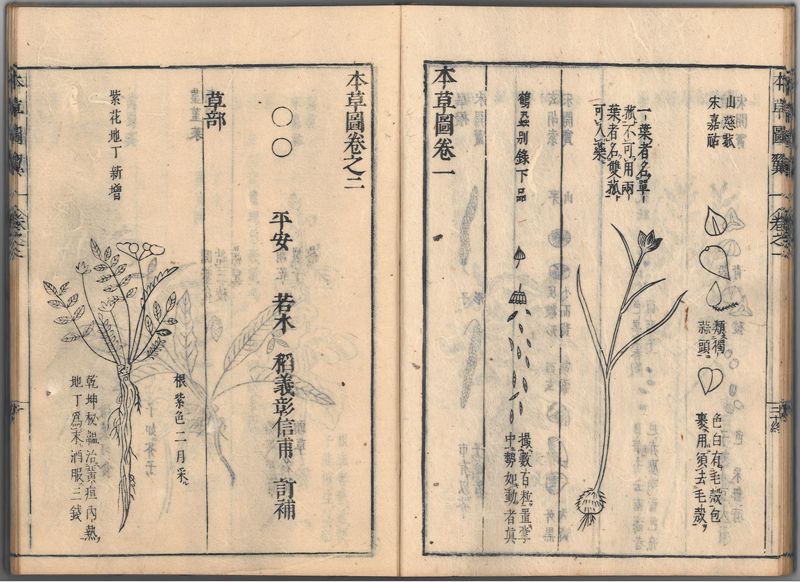 本草圖翼
卷之一
三十終
山慈菰
宋嘉祐
類獨
蒜頭
色白有毛殼包
裹用須去毛殼
一葉者名單
菰不可用兩
葉者名雙菰
可入藥
鶴虱別錄下品
撮數百粒置掌
中勢如動者真
本草圖卷一
本草圖卷之二
○○ 平安 若水 稻義彰信甫 訂補
草部
根紫色二月采
紫花地丁 新增
乾坤秘韞治黃疸內熱
地丁爲末酒服三錢
本草圖翼